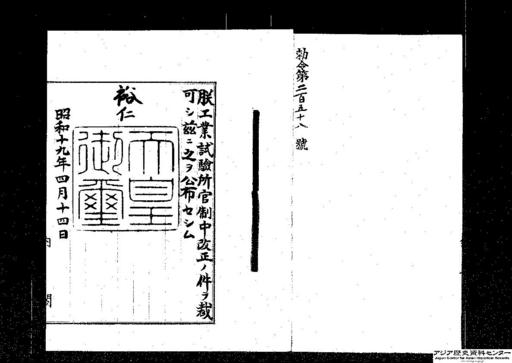 勅令第二百五十八號
朕工業試驗所官制中改正ノ件ヲ裁
可シ茲ニ之ヲ公布セシム
裕仁
天皇御璽
昭和十九年四月十四日
内閣
アジア歴史資料センター
Japan Center for Asian Historical Records